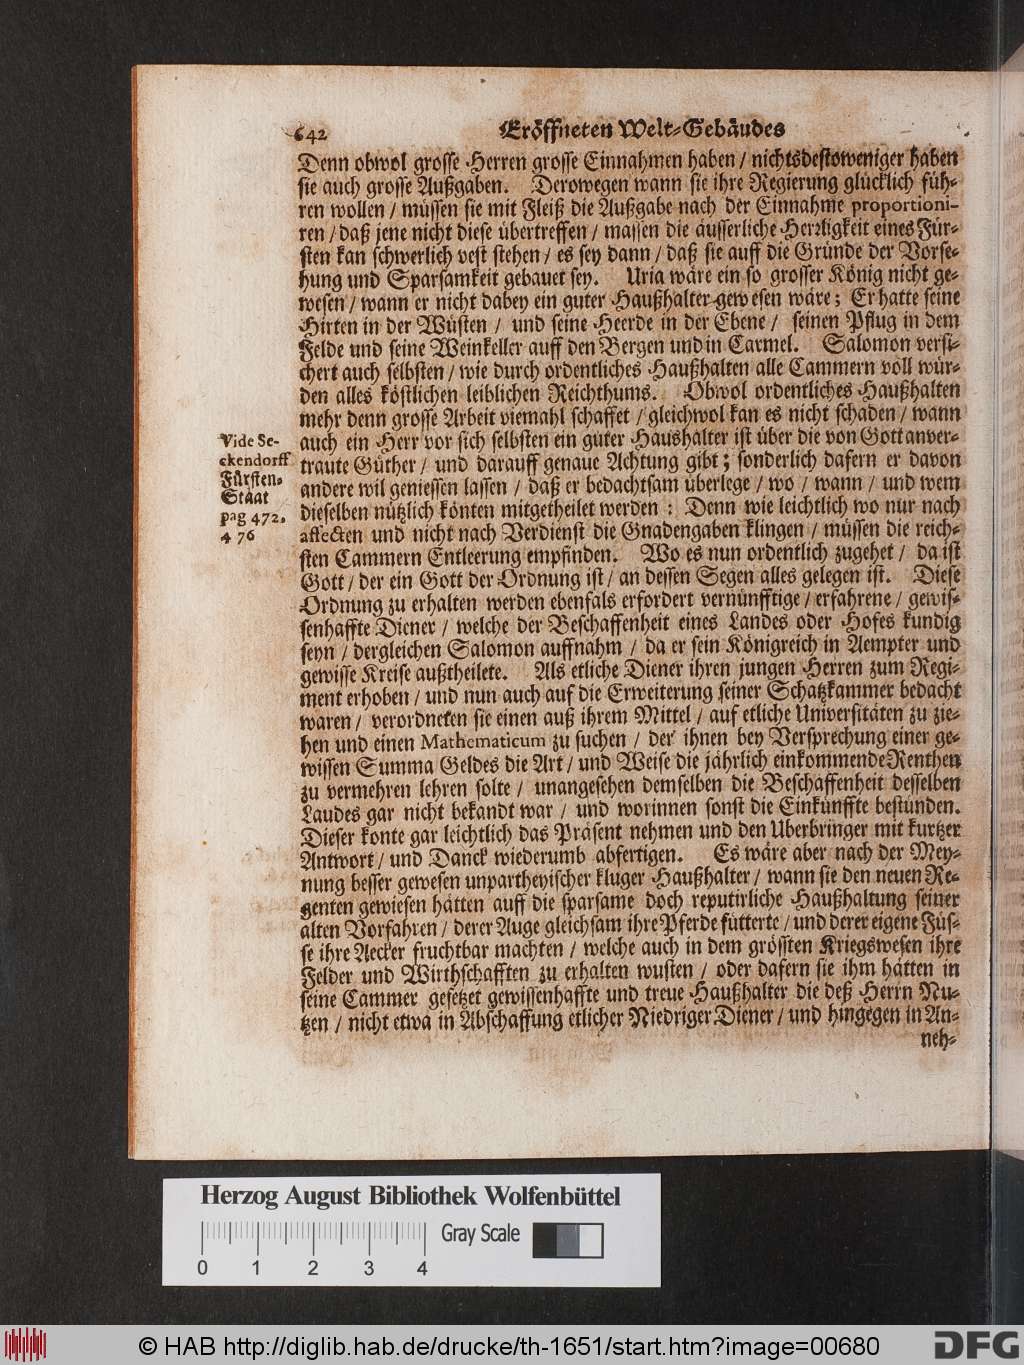 642 Eröffneten Welt-Gebäudes
Denn obwol grosse Herren grosse Einnahmen haben / nichtsdestoweniger haben
sie auch grosse Außgaben. Derowegen wann sie ihre Regierung glücklich füh-
ren wollen / müssen sie mit Fleiß die Außgabe nach der Einnahme proportioni-
ren / daß jene nicht diese übertreffen / massen die äusserliche Herrligkeit eines Für-
sten kan schwerlich vest stehen / es sey dann / daß sie auff die Gründe der Vorse-
hung und Sparsamkeit gebauet sey. Uria wäre ein so grosser König nicht ge-
wesen / wann er nicht dabey ein guter Haußhalter gewesen wäre; Er hatte seine
Hirten in der Wüsten / und seine Heerde in der Ebene / seinen Pflug in dem
Felde und seine Weinkeller auff den Bergen und in Carmel. Salomon versi-
chert auch selbsten / wie durch ordentliches Haußhalten alle Cammern voll wür-
den alles köstlichen leiblichen Reichthums. Obwol ordentliches Haußhalten
mehr denn grosse Arbeit viemahl schaffet / gleichwol kan es nicht schaden / wann
auch ein Herr vor sich selbsten ein guter Haushalter ist über die von Gott anver-
traute Güther / und darauff genaue Achtung gibt; sonderlich dafern er davon
andere wil geniessen lassen / daß er bedachtsam überlege / wo / wann / und wem
dieselben nützlich könten mitgetheilet werden: Denn wie leichtlich wo nur nach
affecten und nicht nach Verdienst die Gnadengaben klingen / müssen die reich-
sten Cammern Entleerung empfinden. Wo es nun ordentlich zugehet / da ist
Gott / der ein Gott der Ordnung ist / an dessen Segen alles gelegen ist. Diese
Ordnung zu erhalten werden ebenfals erfordert vernünfftige / erfahrene / gewis-
senhaffte Diener / welche der Beschaffenheit eines Landes oder Hofes kundig
seyn / dergleichen Salomon auffnahm / da er sein Königreich in Aempter und
gewisse Kreise außtheilete. Als etliche Diener ihren jungen Herren zum Regi-
ment erhoben / und nun auch auf die Erweiterung seiner Schatzkammer bedacht
waren / verordneten sie einen auß ihrem Mittel / auf etliche Universitäten zu zie-
hen und einen Mathematicum zu suchen / der ihnen bey Versprechung einer ge-
wissen Summa Geldes die Art / und Weise die jährlich einkommende Renthen
zu vermehren lehren solte / unangesehen demselben die Beschaffenheit desselben
Laudes gar nicht bekandt war / und worinnen sonst die Einkünffte bestünden.
Dieser konte gar leichtlich das Präsent nehmen und den Uberbringer mit kurtzer
Antwort / und Danck wiederumb abfertigen. Es wäre aber nach der Mey-
nung besser gewesen unpartheyischer kluger Haußhalter / wann sie den neuen Re-
genten gewiesen hätten auff die sparsame doch reputirliche Haußhaltung seiner
alten Vorfahren / derer Auge gleichsam ihre Pferde fütterte / und derer eigene Füs-
se ihre Aecker fruchtbar machten / welche auch in dem grössten Kriegswesen ihre
Felder und Wirthschafften zu erhalten wusten / oder dafern sie ihm hätten in
seine Cammer gesetzet gewissenhaffte und treue Haußhalter die deß Herrn Nu-
tzen / nicht etwa in Abschaffung etlicher Niedriger Diener / und hingegen in An-
neh-
Vide Se-
ckendorff
Fürsten-
Staat
pag 472.
476
Herzog August Bibliothek Wolfenbüttel
Gray Scale
0 1 2 3 4
© HAB http://diglib.hab.de/drucke/th-1651/start.htm?image=00680
DFG